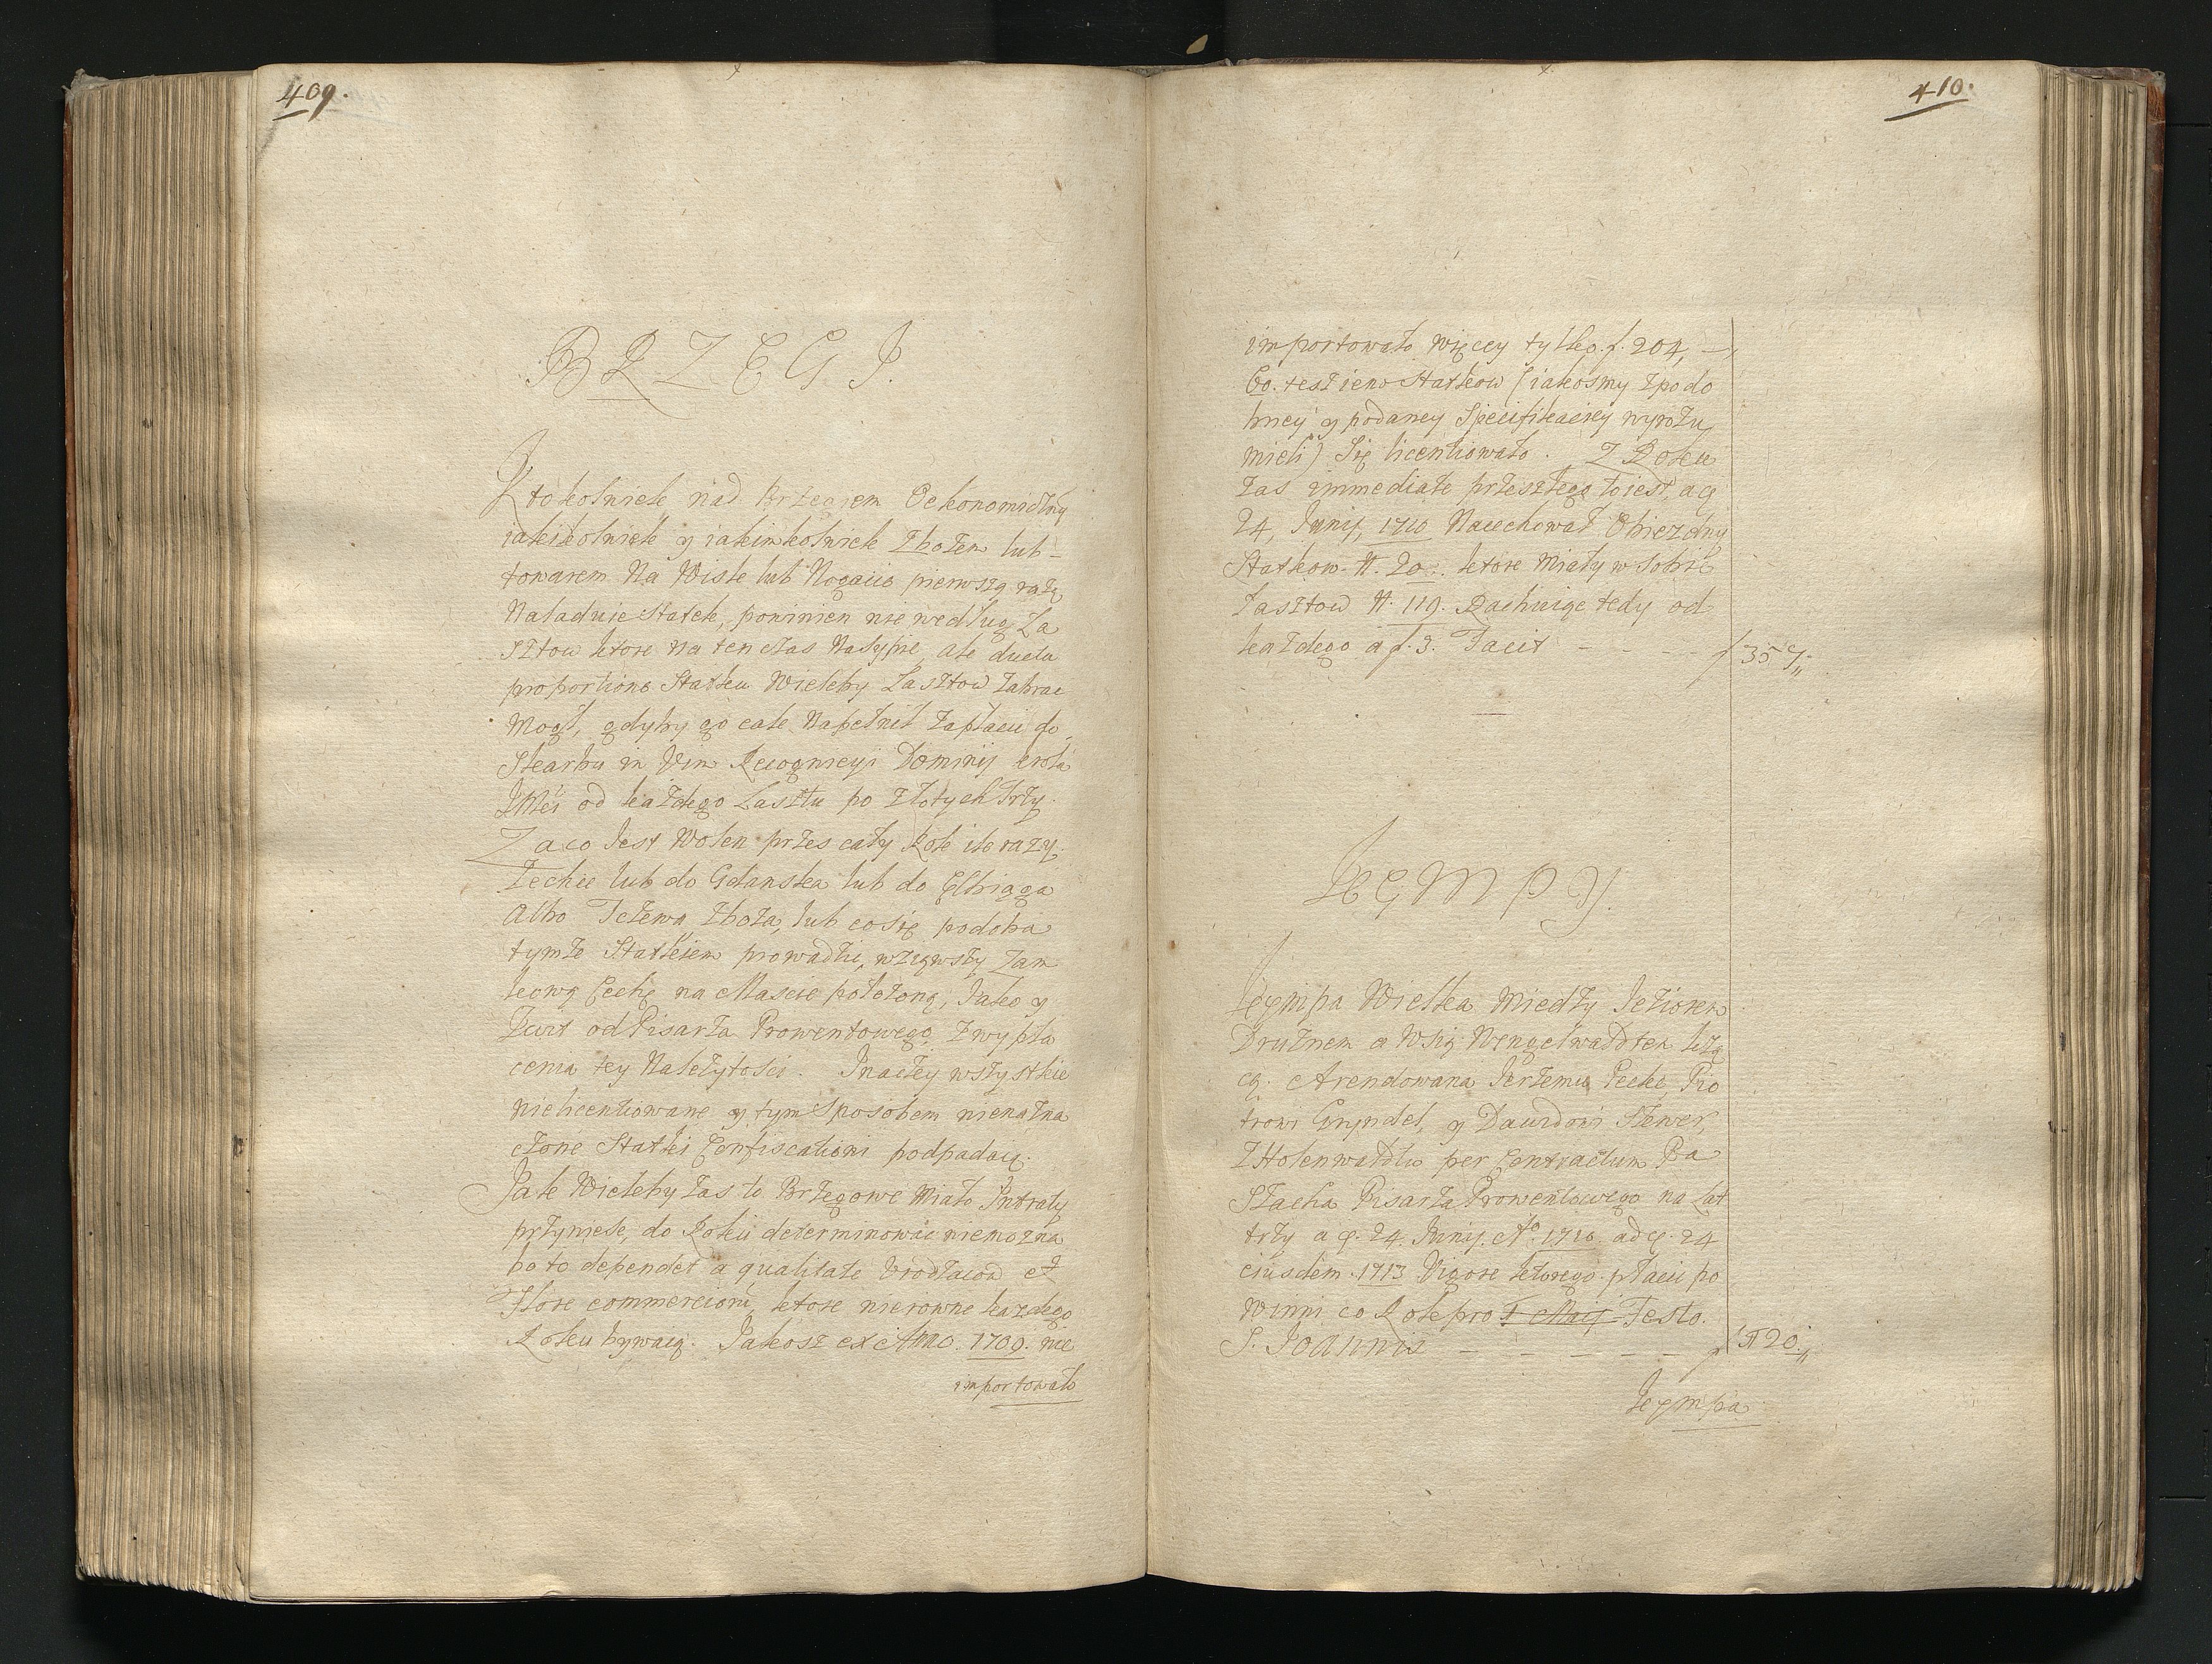 409.
BRZEGI.
Ktokolwiek nad Brzegiem Oekonomiczny
iakikolwiek y iakimkolwiek Zbożem lub
towarem Na Wisle lub Nogacie pierwszą razą
Naładuie Statek, powinien nie według Ła
sztow ktore na ten czas Nasypie, ale ducta
proportione Statku Wieleby Łasztow zabrac
mogł, gdyby go cale Napełnił zapłacic do
Skarbu in Vim Recognicyi Dominij Krola
JMci od każdego Łasztu po Złotych Trzy.
Zaco Jest Wolen przes cały Rok ile razy
Zechce lub do Gdanska lub do Elbiąga
Albo Tczewa, Zboża, lub cosię podoba
tymże Statkiem prowadzic, wziąwszy Zam
kową Cechę na Mascie położoną, Jako y
Kwit od Pisarza Prowentowego, z wypła
cenia tey Należytosci. Inaczey wszystkie
nielicentiowane y tym sposobem nienazna
czone Statki Confiscationi podpadaią.
Jak Wieleby zas to Brzegowe Miało Intraty
przyniesc, do Roku determinowac niemozna
bo to dependet a qualitate Vrodzaiow et
Flore commerciorum, ktore nierowne kazdego
Roku bywaią. Jakosz ex Anno 1709. nie
importowało
410.
importowało więcey tylko f. 204, –,,
Bo tesz iено Statkow (iakosmy z podo
bney y podaney Specifikaciey wyrozu
mieli) Się licentiowało. Z Roku
zas immediate przeszłego to iest, a d.
24, Junij, 1710 Nacechował Obiezdny
Statkow N. 20. ktore Miały w Sobie
Łasztow N. 119. Rachuiąc tedy od
każdego a f. 3. Facit - - - - f 357,,
KĘMPY.
Kępmpa Wielka Miedzy Jeziorem
Druznem a Wsią Wengelwaldten leżą
cą. Arendowana Jerzemu Pecke, Pio
trowi Gryndel, y Dawidowi Stewer,
Z Holenwaldu per Contractum Pa
Stacha Pisarza Prowentowego na Lat
trzy a d. 24. Junij. Ao. 1710. ad d. 24
eiusdem 1713 Vigore ktorego płacic po
winni co Rok pro F. Maij Festo.
S. Joannis – – – – – – f 520,,
Kępmpa